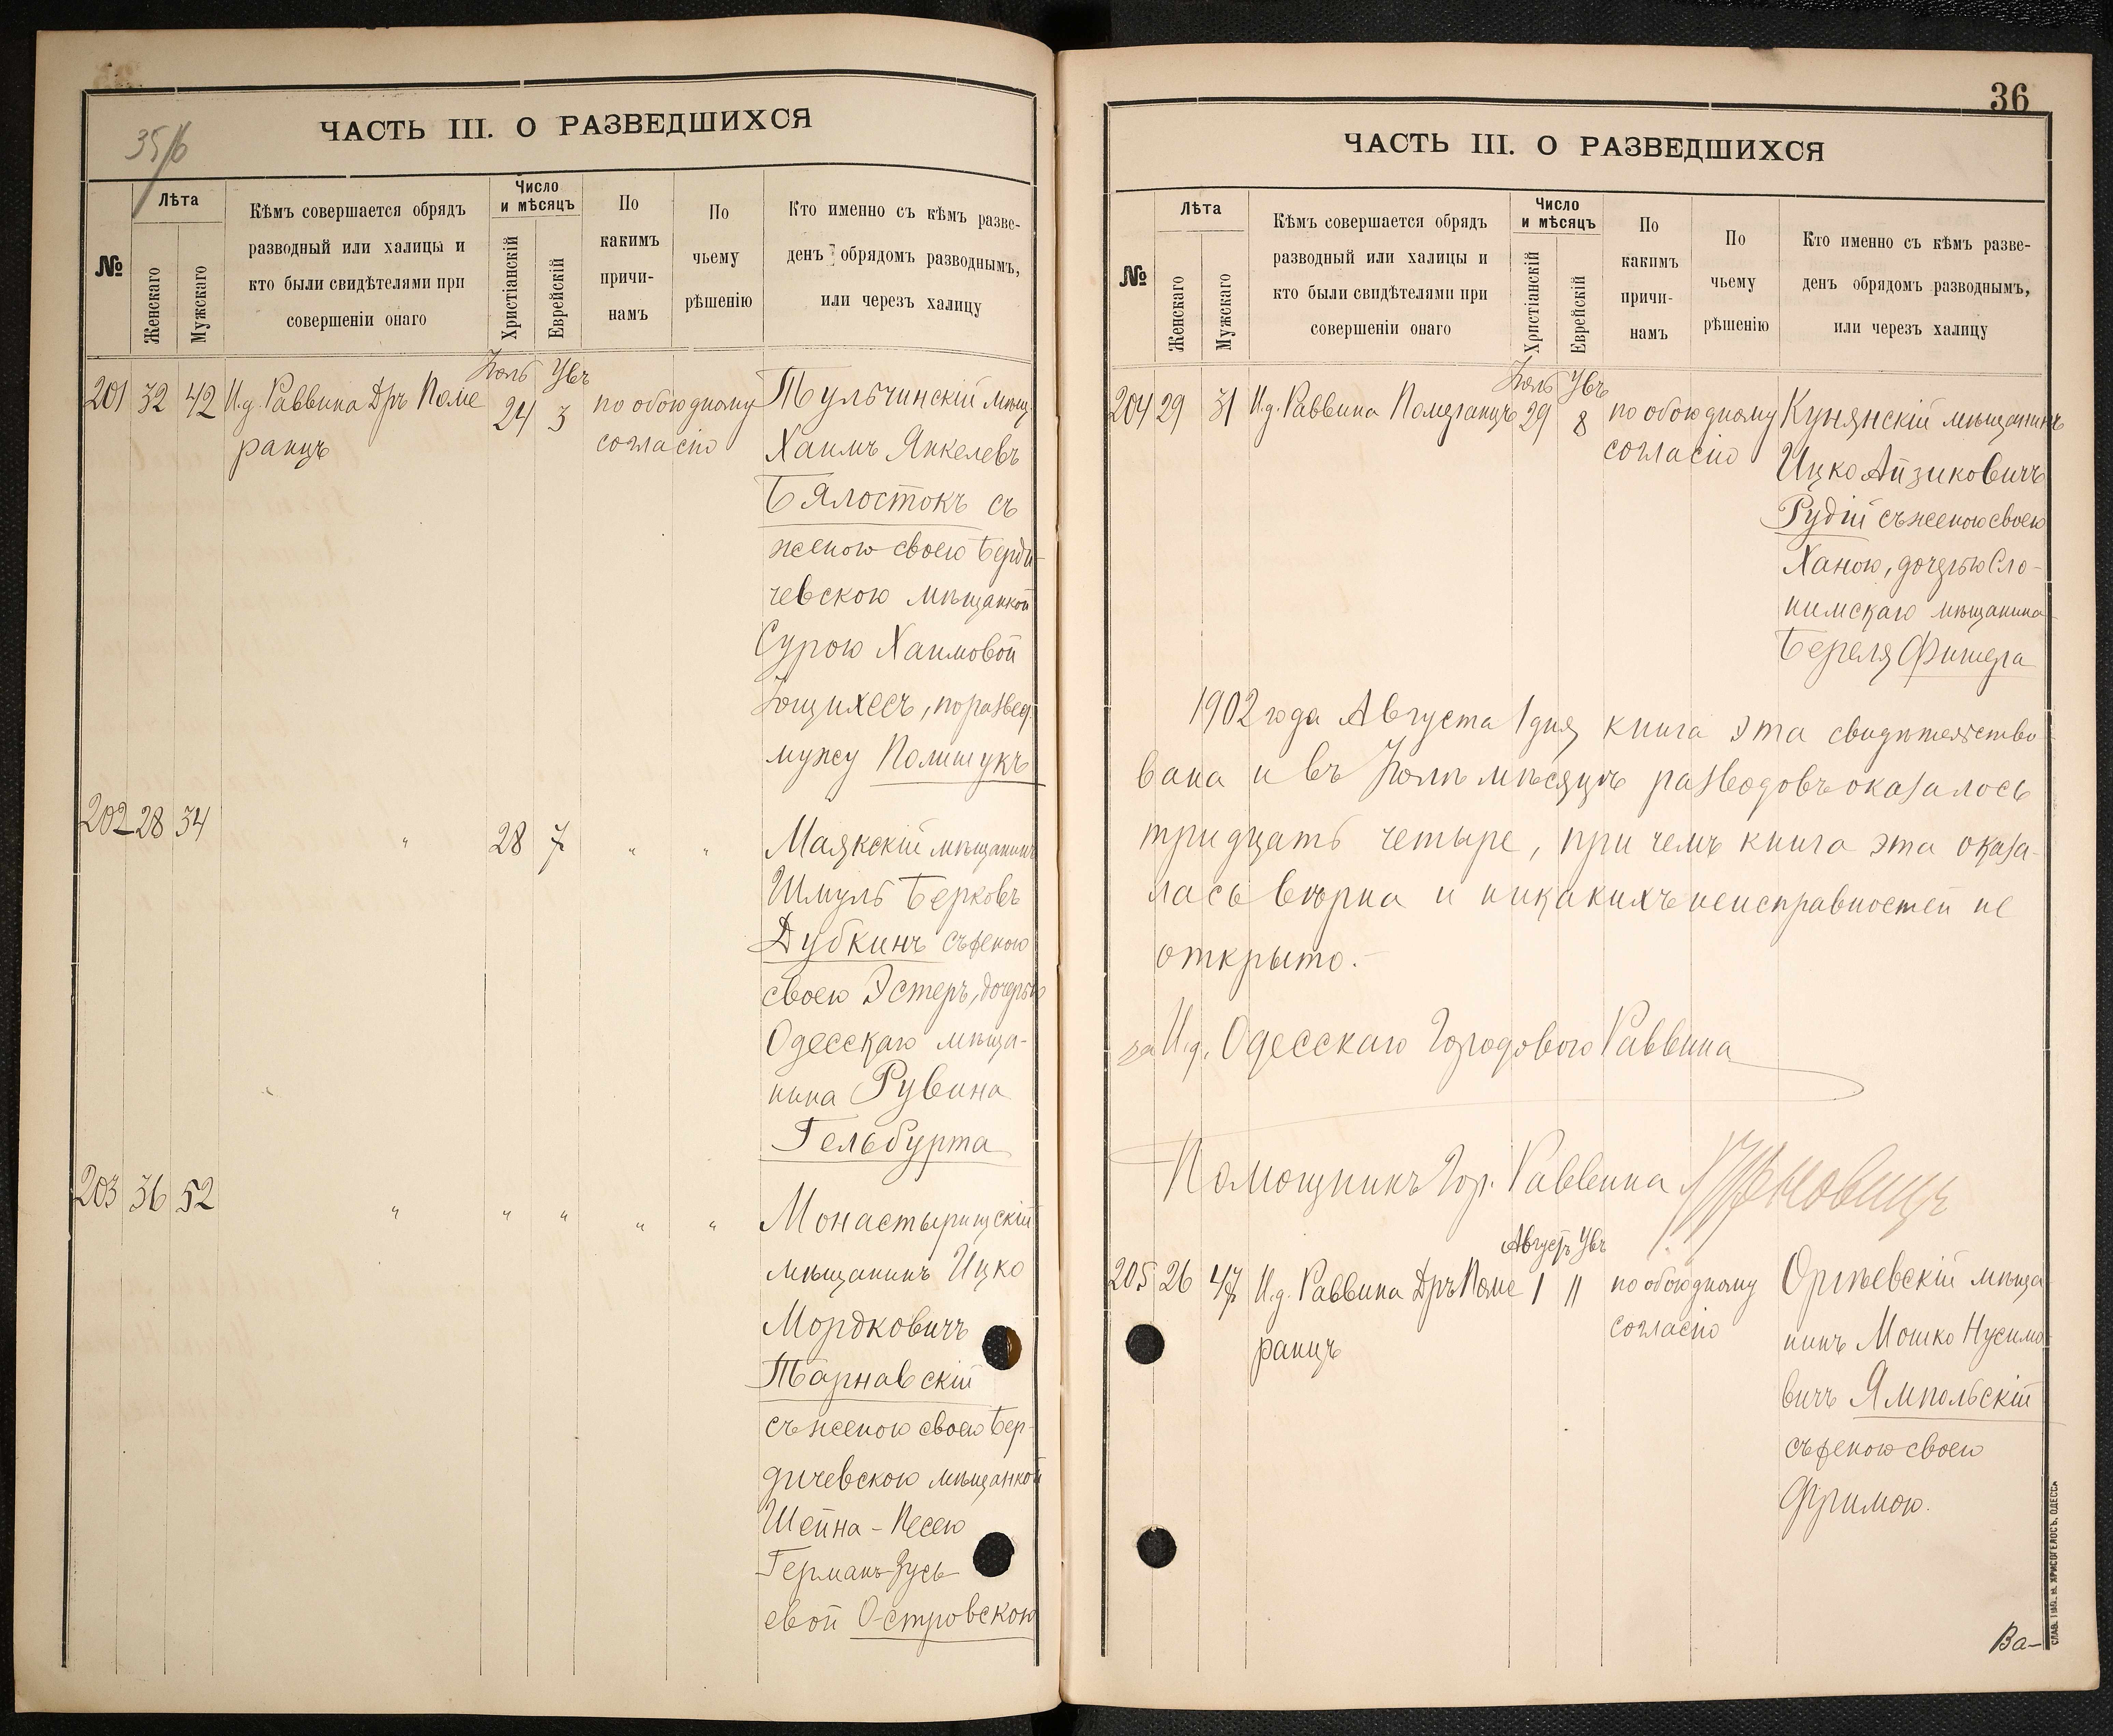 35/6
ЧАСТЬ III. О РАЗВЕДШИХСЯ
№
Лѣта
Женскаго
Мужскаго
Кѣмъ совершается обрядъ
разводный или халицы и
кто были свидѣтелями при
совершеніи онаго
Число
и мѣсяцъ
Христіанскій
Еврейскій
По
какимъ
причи-
намъ
По
чьему
рѣшенію
Кто именно съ кѣмъ разве-
денъ обрядомъ разводнымъ,
или черезъ халицу
201 32 42 И.д. Раввина Дръ Поме
ранцъ
Іюль Увъ
24 3
по обоюдному
согласію
Тульчинскій мѣщ.
Хаимъ Янкелевъ
Бялостокъ съ
женою своею Берди-
чевскою мѣщанкой
Сурою Хаимовой
Ющихесъ, по развед.
мужу Полищукъ
202 28 34 " 28 7 " "
Маякскій мѣщанинъ
Шмуль Берковъ
Дубкинъ съ женою
своею Эстеръ, дочерью
Одесскаго мѣща-
нина Рувина
Гельбурта
203 36 52 " " " " "
Монастырищскій
мѣщанинъ Ицко
Мордковичъ
Тарнавскій
съ женою своею Бер-
дичевскою мѣщанкой
Шейна-Песею
Германъ-Зусь-
евой Островскою
36
ЧАСТЬ III. О РАЗВЕДШИХСЯ
№
Лѣта
Женскаго
Мужскаго
Кѣмъ совершается обрядъ
разводный или халицы и
кто были свидѣтелями при
совершеніи онаго
Число
и мѣсяцъ
Христіанскій
Еврейскій
По
какимъ
причи-
намъ
По
чьему
рѣшенію
Кто именно съ кѣмъ разве-
денъ обрядомъ разводнымъ,
или черезъ халицу
204 29 31 И.д. Раввина Померанцъ
Іюль Увъ
29 8
по обоюдному
согласію
Кунянскій мѣщанинъ
Ицко Айзиковичъ
Рудій съ женою своею
Ханою, дочерью Сло-
нимскаго мѣщанина
Береля Фишера
1902 года Августа 1 дня книга эта свидѣтельство-
вана и въ Іюлѣ мѣсяцѣ разводовъ оказалось
тридцать четыре, при чемъ книга эта оказа-
лась вѣрна и никакихъ неисправностей не
открыто.-
за И.д. Одесскаго Городового Раввина
Помощникъ Гор. Раввина
Августъ Увъ
205 26 47 И.д. Раввина Дръ Поме
ранцъ
1 11
по обоюдному
согласію
Оргѣевскій мѣща-
нинъ Мошко Нусимо-
вичъ Ямпольскій
съ женою своею
Фримою.
Ва-
СЛАВ. ТИП. Н. ХРИСОГЕЛОСЪ, ОДЕССА